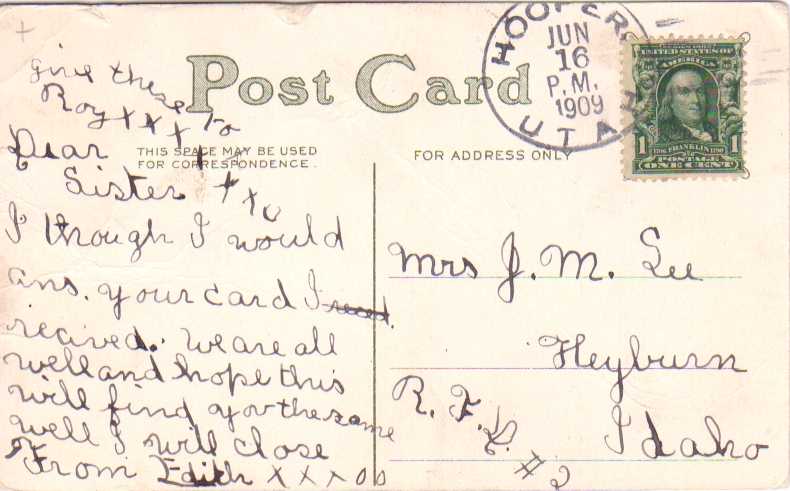 Post Card
HOOPER
JUN
16
P.M.
1909
UTAH
UNITED STATES OF
AMERICA
1
1706 FRANKLIN 1790
POSTAGE
ONE CENT
THIS SPACE MAY BE USED
FOR CORRESPONDENCE.
FOR ADDRESS ONLY
give these to
Roy x x x x x x x
Dear
Sister
I though I would
ans. your card I
recived. We are all
well and hope this
will find you the same
well I will close
From Edith x x x o o
Mrs J. M. Lee
Heyburn
R. F. D. # 2 Idaho